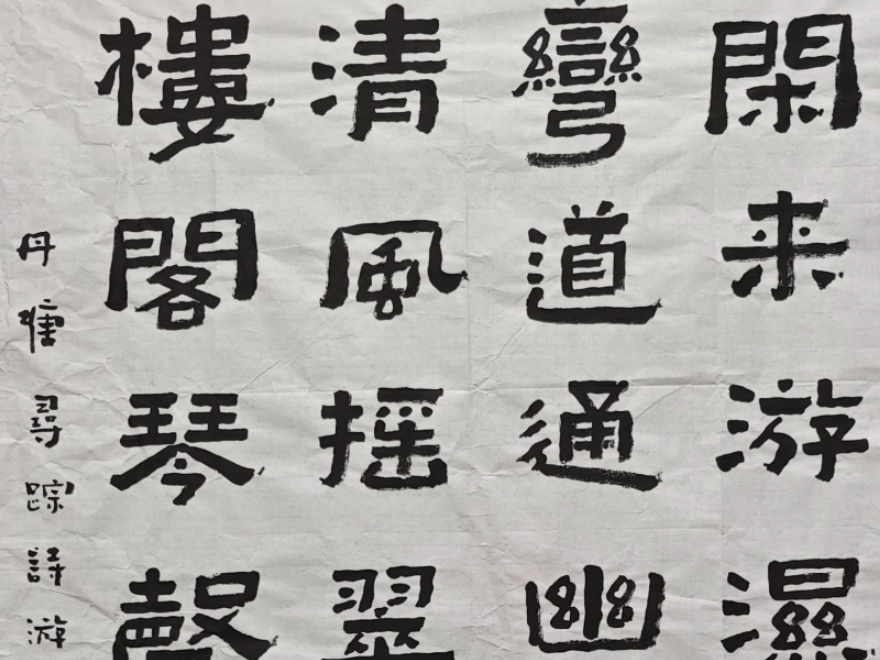 閑来游濕
彎道通幽
清風摇翠
樓閣琴聲
丹尋踪詩游